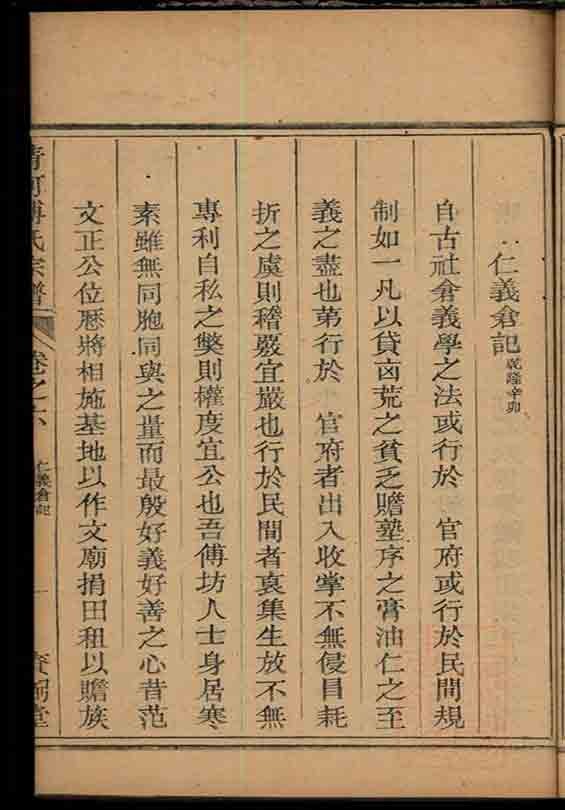 仁義倉記乾隆辛卯
自古社倉義學之法或行於 官府或行於民間規
制如一凡以貸卤荒之貧乏贍塾序之膏油仁之至
義之盡也苐行於 官府者出入收掌不無侵冒耗
折之虞則稽覈宜嚴也行於民間者裒集生放不無
專利自私之獘則權度宜公也吾傅坊人士身居寒
素雖無同胞同與之量而最殷好義好善之心昔范
文正公位歷將相施基地以作文廟捐田租以贍族
清河傅氏宗譜 卷之六 仁義倉記 一 堂